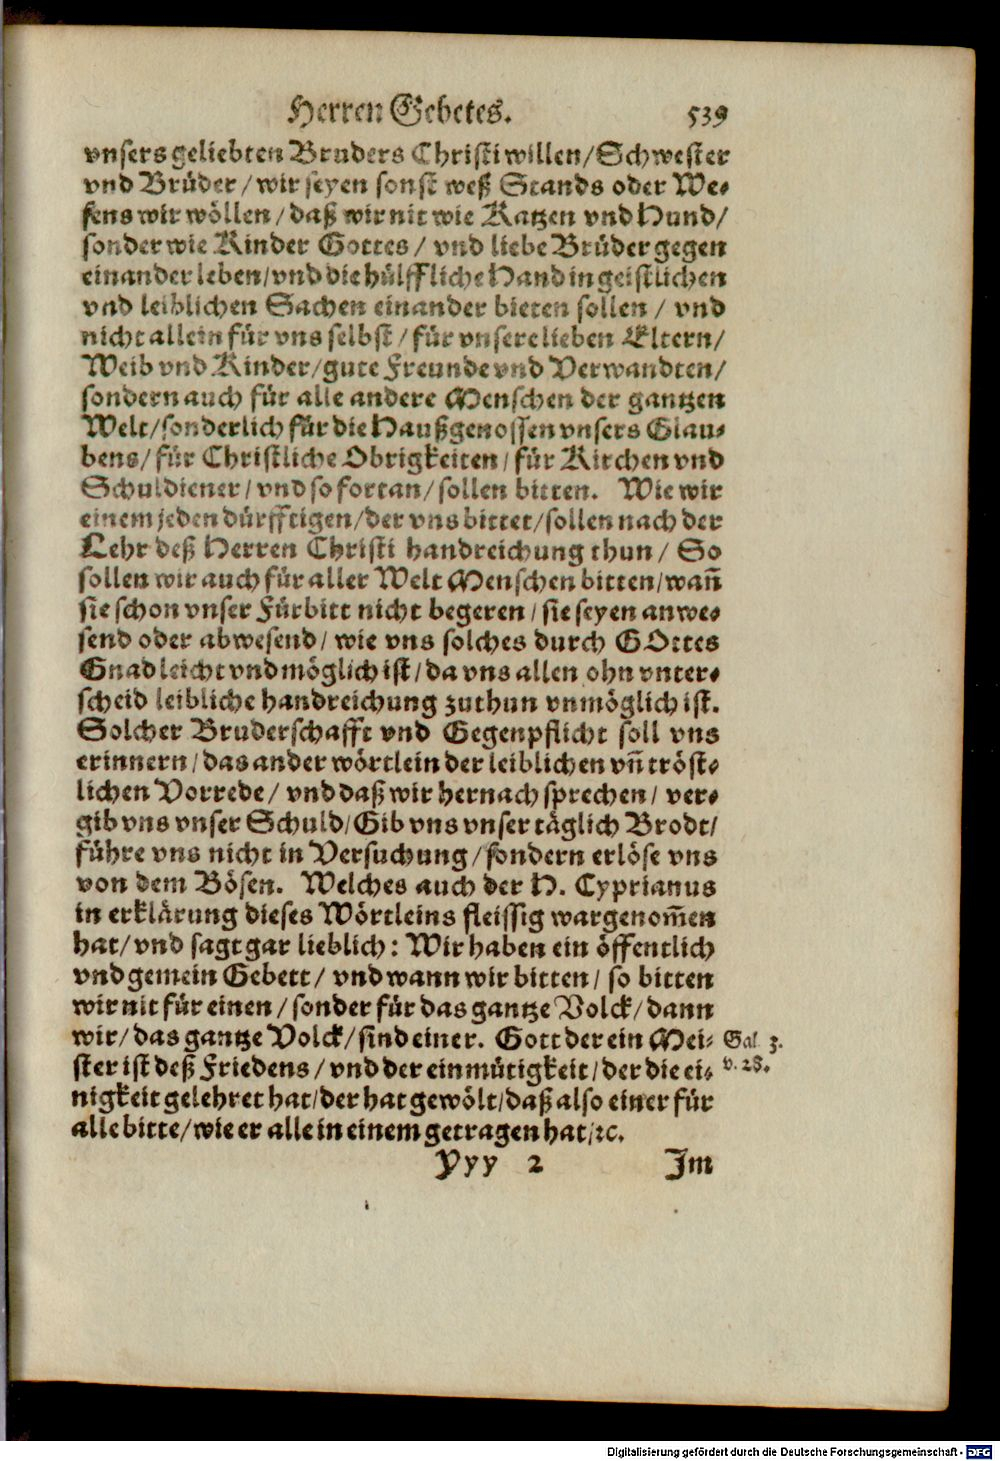 Herren Gebetes. 539
vnsers geliebten Bruders Christi willen/Schwester
vnd Brüder/wir seyen sonst weß Stands oder We-
sens wir wöllen/daß wir nit wie Katzen vnd Hund/
sonder wie Kinder Gottes/ vnd liebe Brüder gegen
einander leben/vnd die hülffliche Hand in geistlichen
vnd leiblichen Sachen einander bieten sollen/ vnd
nicht allein für vns selbst/für vnsere lieben Eltern/
Weib vnd Kinder/gute Freunde vnd Verwandten/
sondern auch für alle andere Menschen der gantzen
Welt/sonderlich für die Haußgenossen vnsers Glau-
bens/für Christliche Obrigkeiten/für Kirchen vnd
Schuldiener/vnd so fortan/sollen bitten. Wie wir
einem jeden dürfftigen/der vns bittet/sollen nach der
Lehr deß Herren Christi handreichung thun/ So
sollen wir auch für aller Welt Menschen bitten/wañ
sie schon vnser Fürbitt nicht begeren/sie seyen anwe-
send oder abwesend/wie vns solches durch GOttes
Gnad leicht vnd möglich ist/da vns allen ohn vnter-
scheid leibliche handreichung zuthun vnmöglich ist.
Solcher Bruderschafft vnd Gegenpflicht soll vns
erinnern/das ander wörtlein der leiblichen vñ tröst-
lichen Vorrede/ vnd daß wir hernach sprechen/ ver-
gib vns vnser Schuld/Gib vns vnser täglich Brodt/
führe vns nicht in Versuchung/sondern erlöse vns
von dem Bösen. Welches auch der H. Cyprianus
in erklärung dieses Wörtleins fleissig wargenom̃en
hat/vnd sagt gar lieblich: Wir haben ein öffentlich
vnd gemein Gebett/ vnd wann wir bitten/ so bitten
wir nit für einen/sonder für das gantze Volck/dann
wir/das gantze Volck/sind einer. Gott der ein Mei- Gal. 3.
ster ist deß Friedens/vnd der einmütigkeit/der die ei- v. 28.
nigkeit gelehret hat/der hat gewölt/daß also einer für
alle bitte/wie er alle in einem getragen hat/ꝛc.
Yyy 2 Im
Digitalisierung gefördert durch die Deutsche Forschungsgemeinschaft - DFG